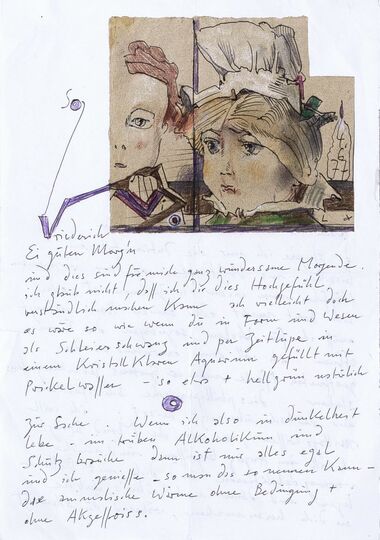 So
Friederich
Ei guten Morg'n
und dies sind für mich ganz wundersame Morgende.
ich glaub nicht, daß ich dir dies Hochgefühl
verständlich machen kann ach vielleicht doch
es wäre so wie wenn du in Form und Wesen
als Schleierschwanz und per Zeitlupe in
einem Kristallklaren Aquarium gefüllt mit
Prickelwasser - so etwa + hellgrün natürlich
Zur Sache. Wenn ich also in Dunkelheit
lebe - im trüben Alkoholikum und
Schutz brauche dann ist mir alles egal
und ich genieße - so man das so nennen kann -
das animalische Wärme ohne Bedingung +
ohne